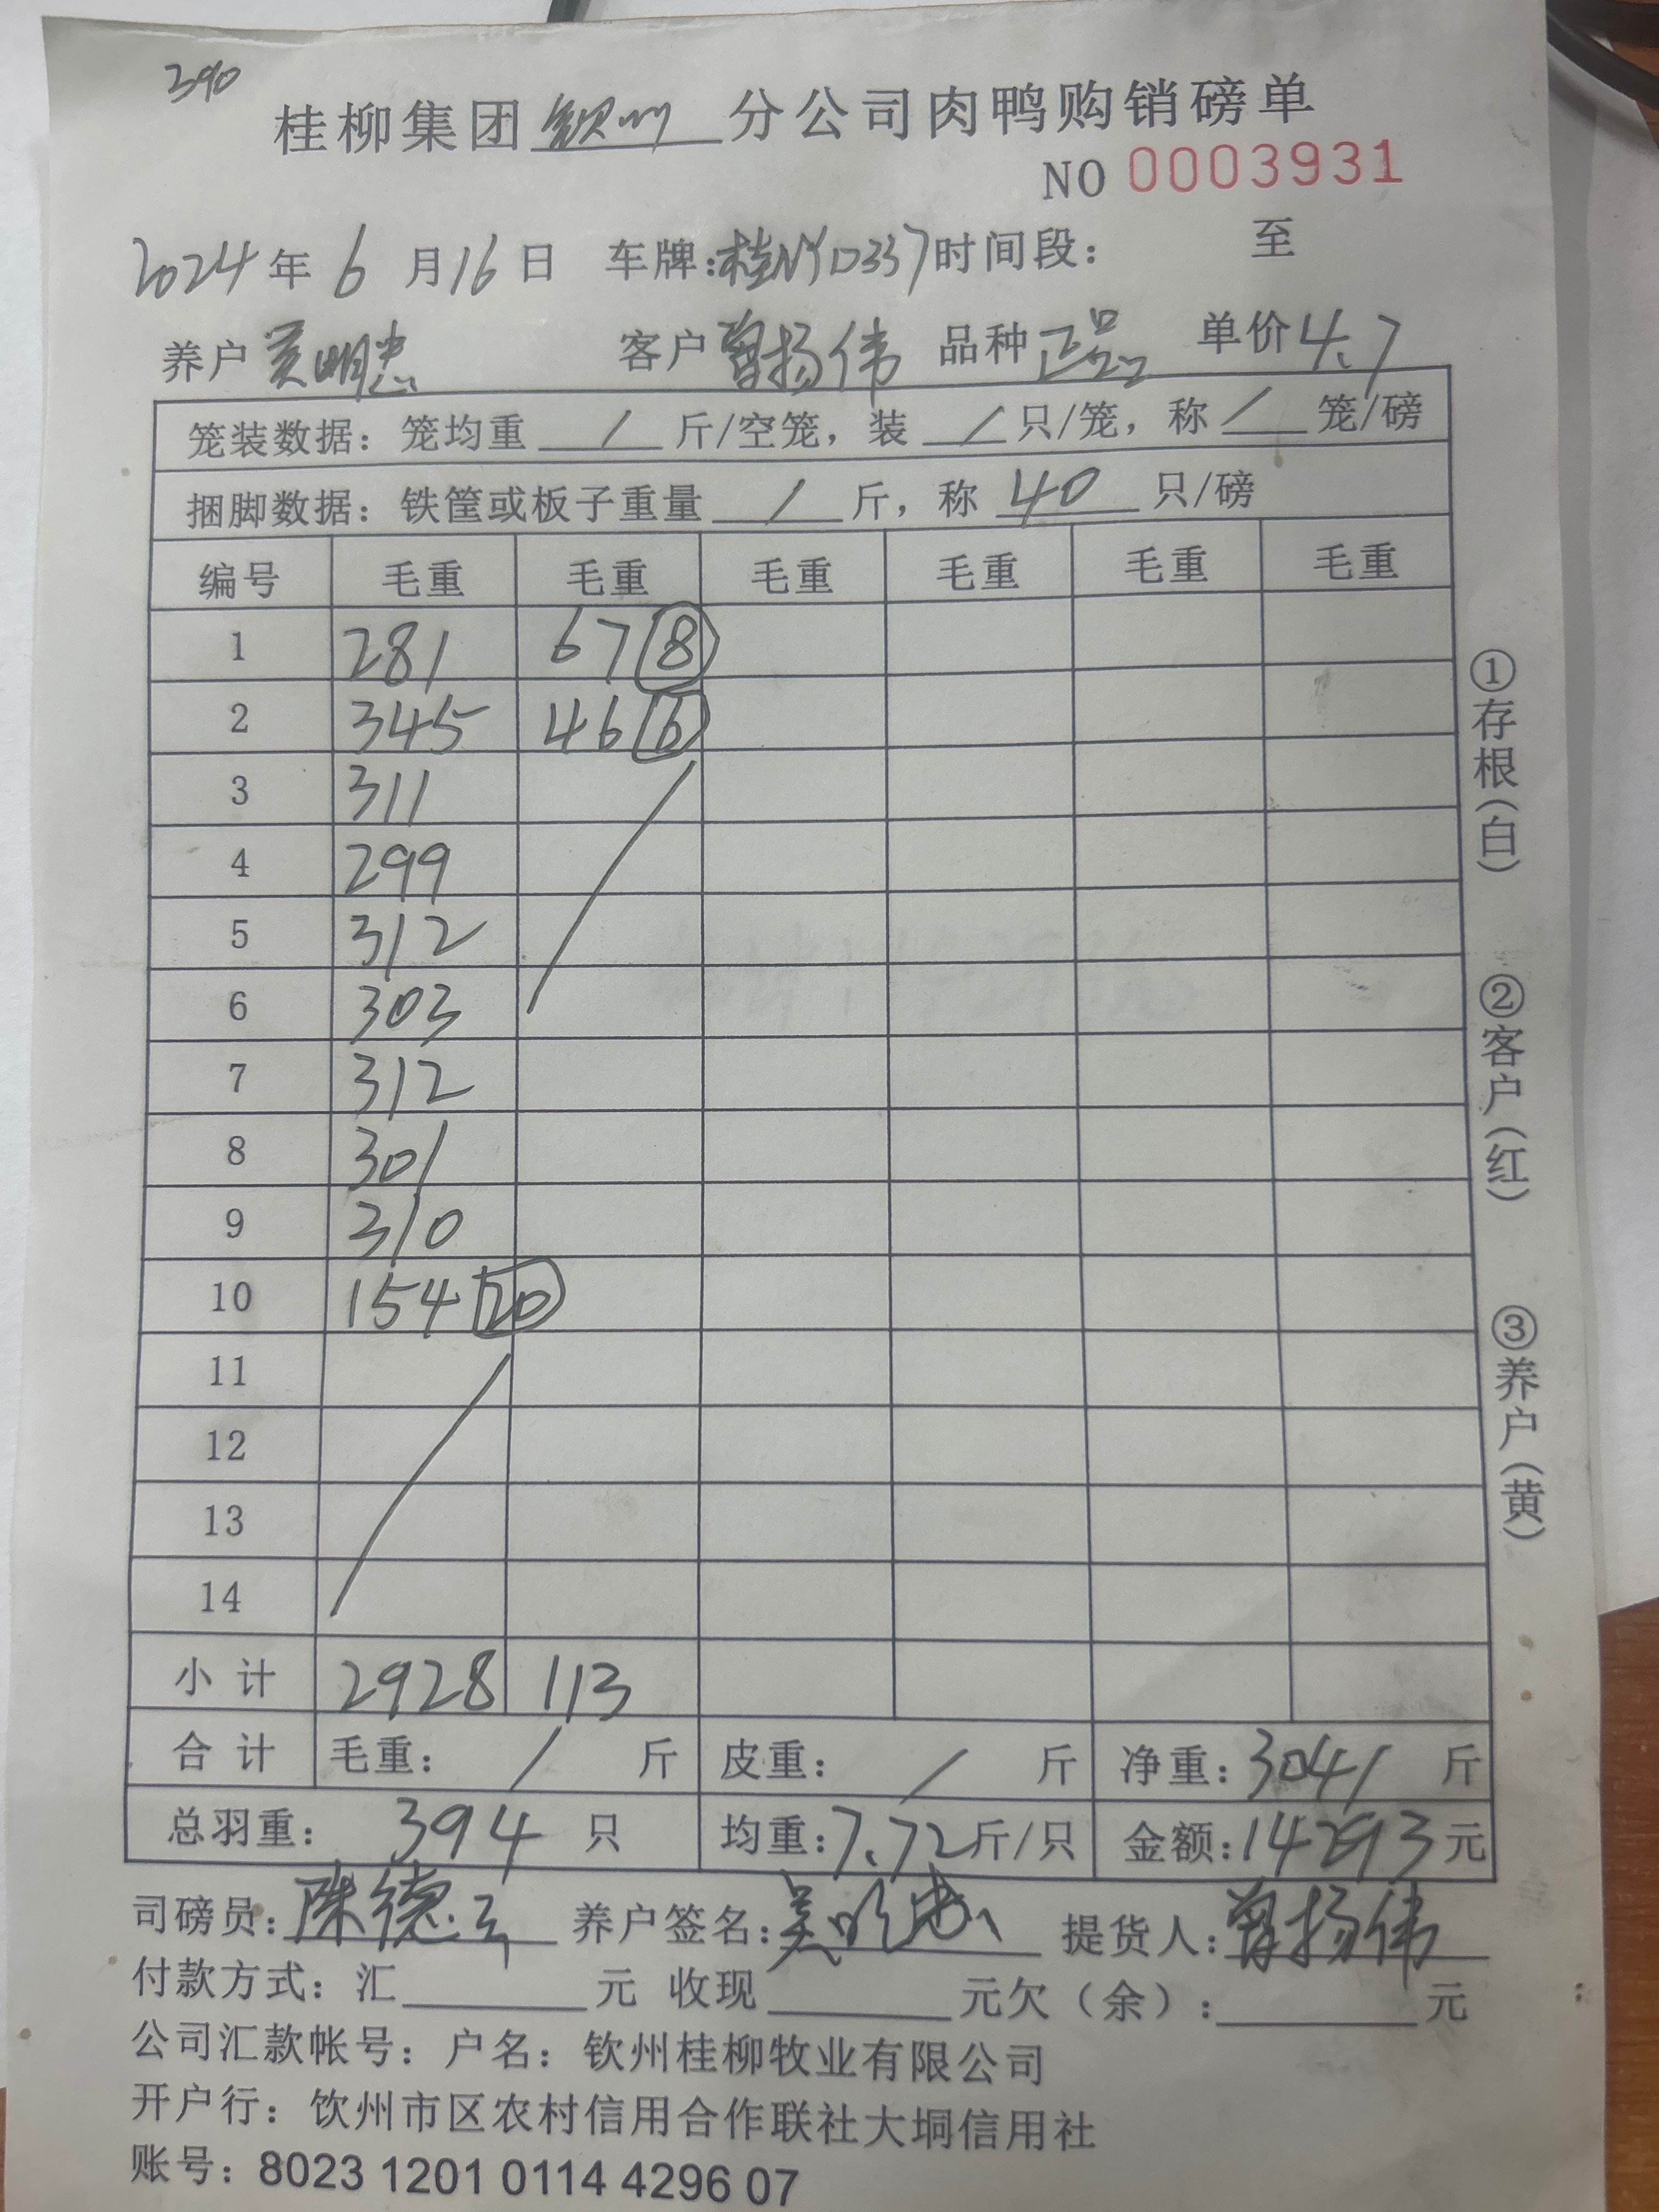 390
桂柳集团 钦州 分公司肉鸭购销磅单
NO 0003931
2024年6月16日 车牌:桂NYD337 时间段: 至
养户 吴明忠 客户 曾扬伟 品种 正品 单价 4.7
笼装数据: 笼均重 / 斤/空笼, 装 / 只/笼, 称 / 笼/磅
捆脚数据: 铁筐或板子重量 / 斤, 称 40 只/磅
编号 毛重 毛重 毛重 毛重 毛重 毛重
1 281 67 8
2 345 46 6
3 311
4 299
5 312
6 303
7 312
8 301
9 310
10 154 20
11
12
13
14
小计 2928 113
合计 毛重: / 斤 皮重: / 斤 净重: 3041 斤
总羽重: 394 只 均重: 7.72 斤/只 金额: 14293 元
司磅员: 陈德 养户签名: 吴明忠 提货人: 曾扬伟
付款方式: 汇 元 收现 元欠(余): 元
公司汇款帐号: 户名: 钦州桂柳牧业有限公司
开户行: 钦州市区农村信用合作联社大垌信用社
账号: 8023 1201 0114 4296 07
①存根(白)
②客户(红)
③养户(黄)